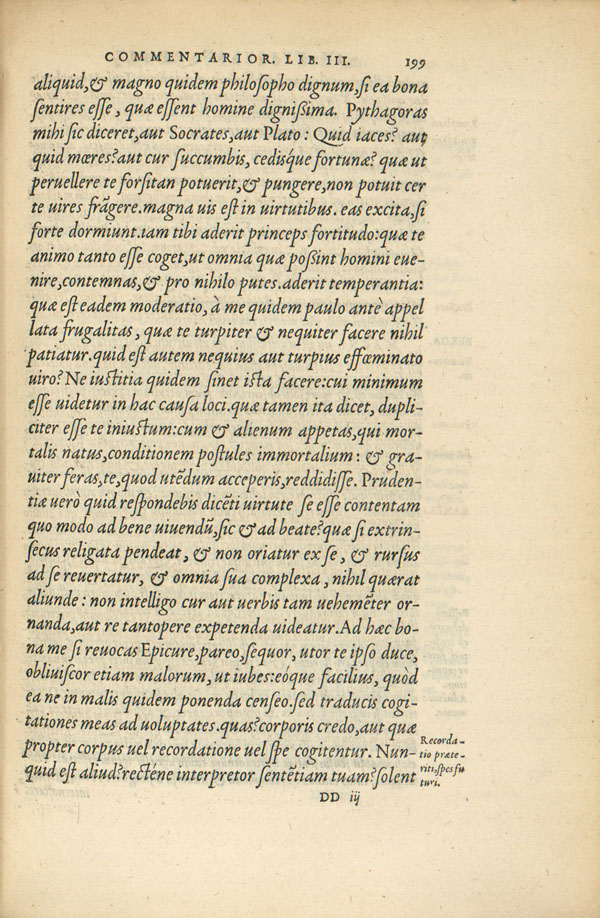 COMMENTARIOR. LIB. III. 199
aliquid,& magno quidem philosopho dignum,si ea bona
sentires esse, quæ essent homine dignissima. Pythagoras
mihi sic diceret,aut Socrates,aut Plato: Quid iaces? aut
quid mœres?aut cur succumbis, cedisq́ue fortunæ? quæ ut
peruellere te forsitan potuerit,& pungere,non potuit cer
te uires frãgere.magna uis est in uirtutibus. eas excita,si
forte dormiunt.iam tibi aderit princeps fortitudo:quæ te
animo tanto esse coget,ut omnia quæ possint homini eue-
nire,contemnas,& pro nihilo putes.aderit temperantia:
quæ est eadem moderatio, à me quidem paulo antè appel
lata frugalitas, quæ te turpiter & nequiter facere nihil
patiatur.quid est autem nequius aut turpius effœminato
uiro? Ne iustitia quidem sinet ista facere:cui minimum
esse uidetur in hac causa loci.quæ tamen ita dicet, dupli-
citer esse te iniustum:cum & alienum appetas,qui mor-
talis natus,conditionem postules immortalium: & gra-
uiter feras,te,quod utẽdum acceperis,reddidisse. Pruden-
tiæ uerò quid respondebis dicẽti uirtute se esse contentam
quo modo ad bene uiuendũ,sic & ad beate?quæ si extrin-
secus religata pendeat, & non oriatur ex se, & rursus
ad se reuertatur, & omnia sua complexa, nihil quærat
aliunde: non intelligo cur aut uerbis tam uehemẽter or-
nanda,aut re tantopere expetenda uideatur.Ad hæc bo-
na me si reuocas Epicure,pareo,sequor, utor te ipso duce,
obliuiscor etiam malorum, ut iubes:eóque facilius, quòd
ea ne in malis quidem ponenda censeo.sed traducis cogi-
tationes meas ad uoluptates.quas?corporis credo,aut quæ
propter corpus uel recordatione uel spe cogitentur. Nun-
quid est aliud?recténe interpretor sentẽtiam tuam?solent
Recorda-
tio præte-
riti,spes fu
turi.
DD iij